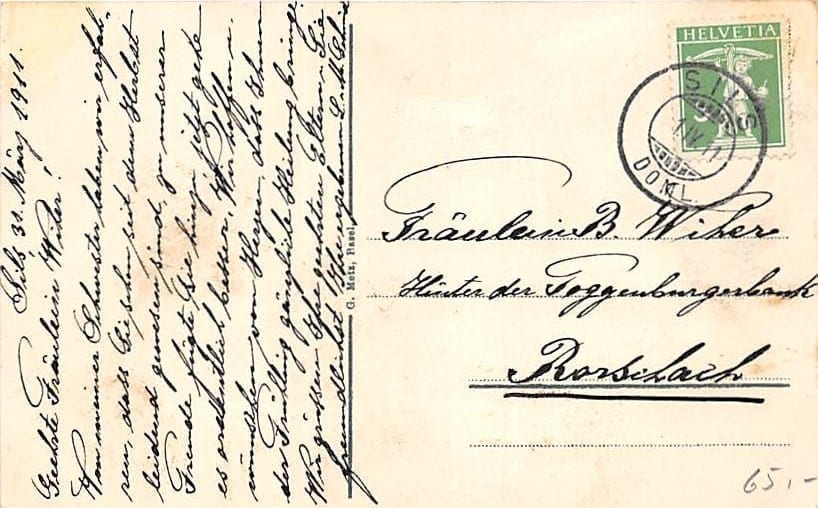 Sils 31. März 1911.
Geehrte Fräulein Wiher!
Von meiner Schwester haben wir erfah-
ren, dass Sie schon seit dem Herbst
leidend gewesen sind, zu unserer
Freude fügte sie bei, jetzt gehe
es ordentlich besser. Wir hoffen u.
wünschen von Herzen, dass Ihnen
der Frühling gänzliche Heilung bringe.
Wir grüssen Ihre geehrten Eltern u. Sie
freundlichst
G. Metz, Basel.
HELVETIA
SILS
1.IV.11
DOML.
Fräulein B. Wiher
Hinter der Toggenburgerbank
Rorschach
65,-